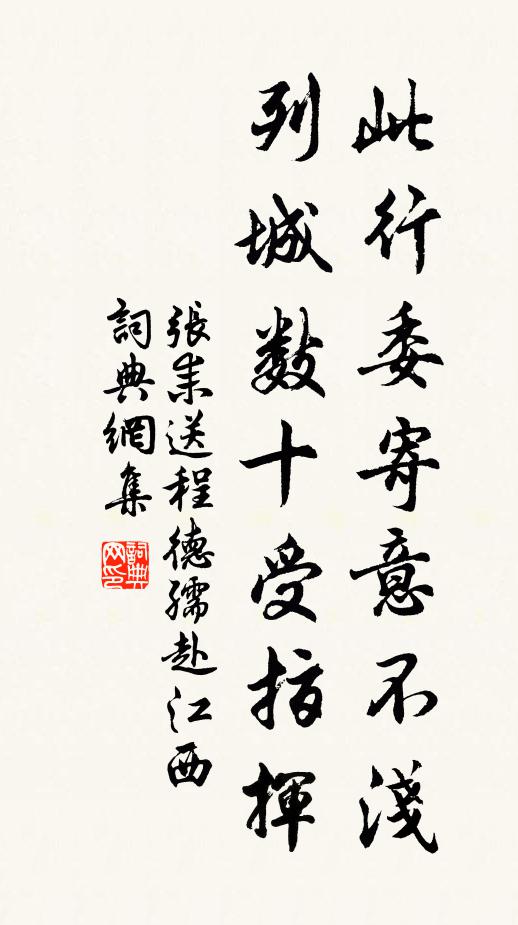 此行委寄意不淺
列城數十受指揮
張耒送程德孺赴江西
詞典網集
詞典网印